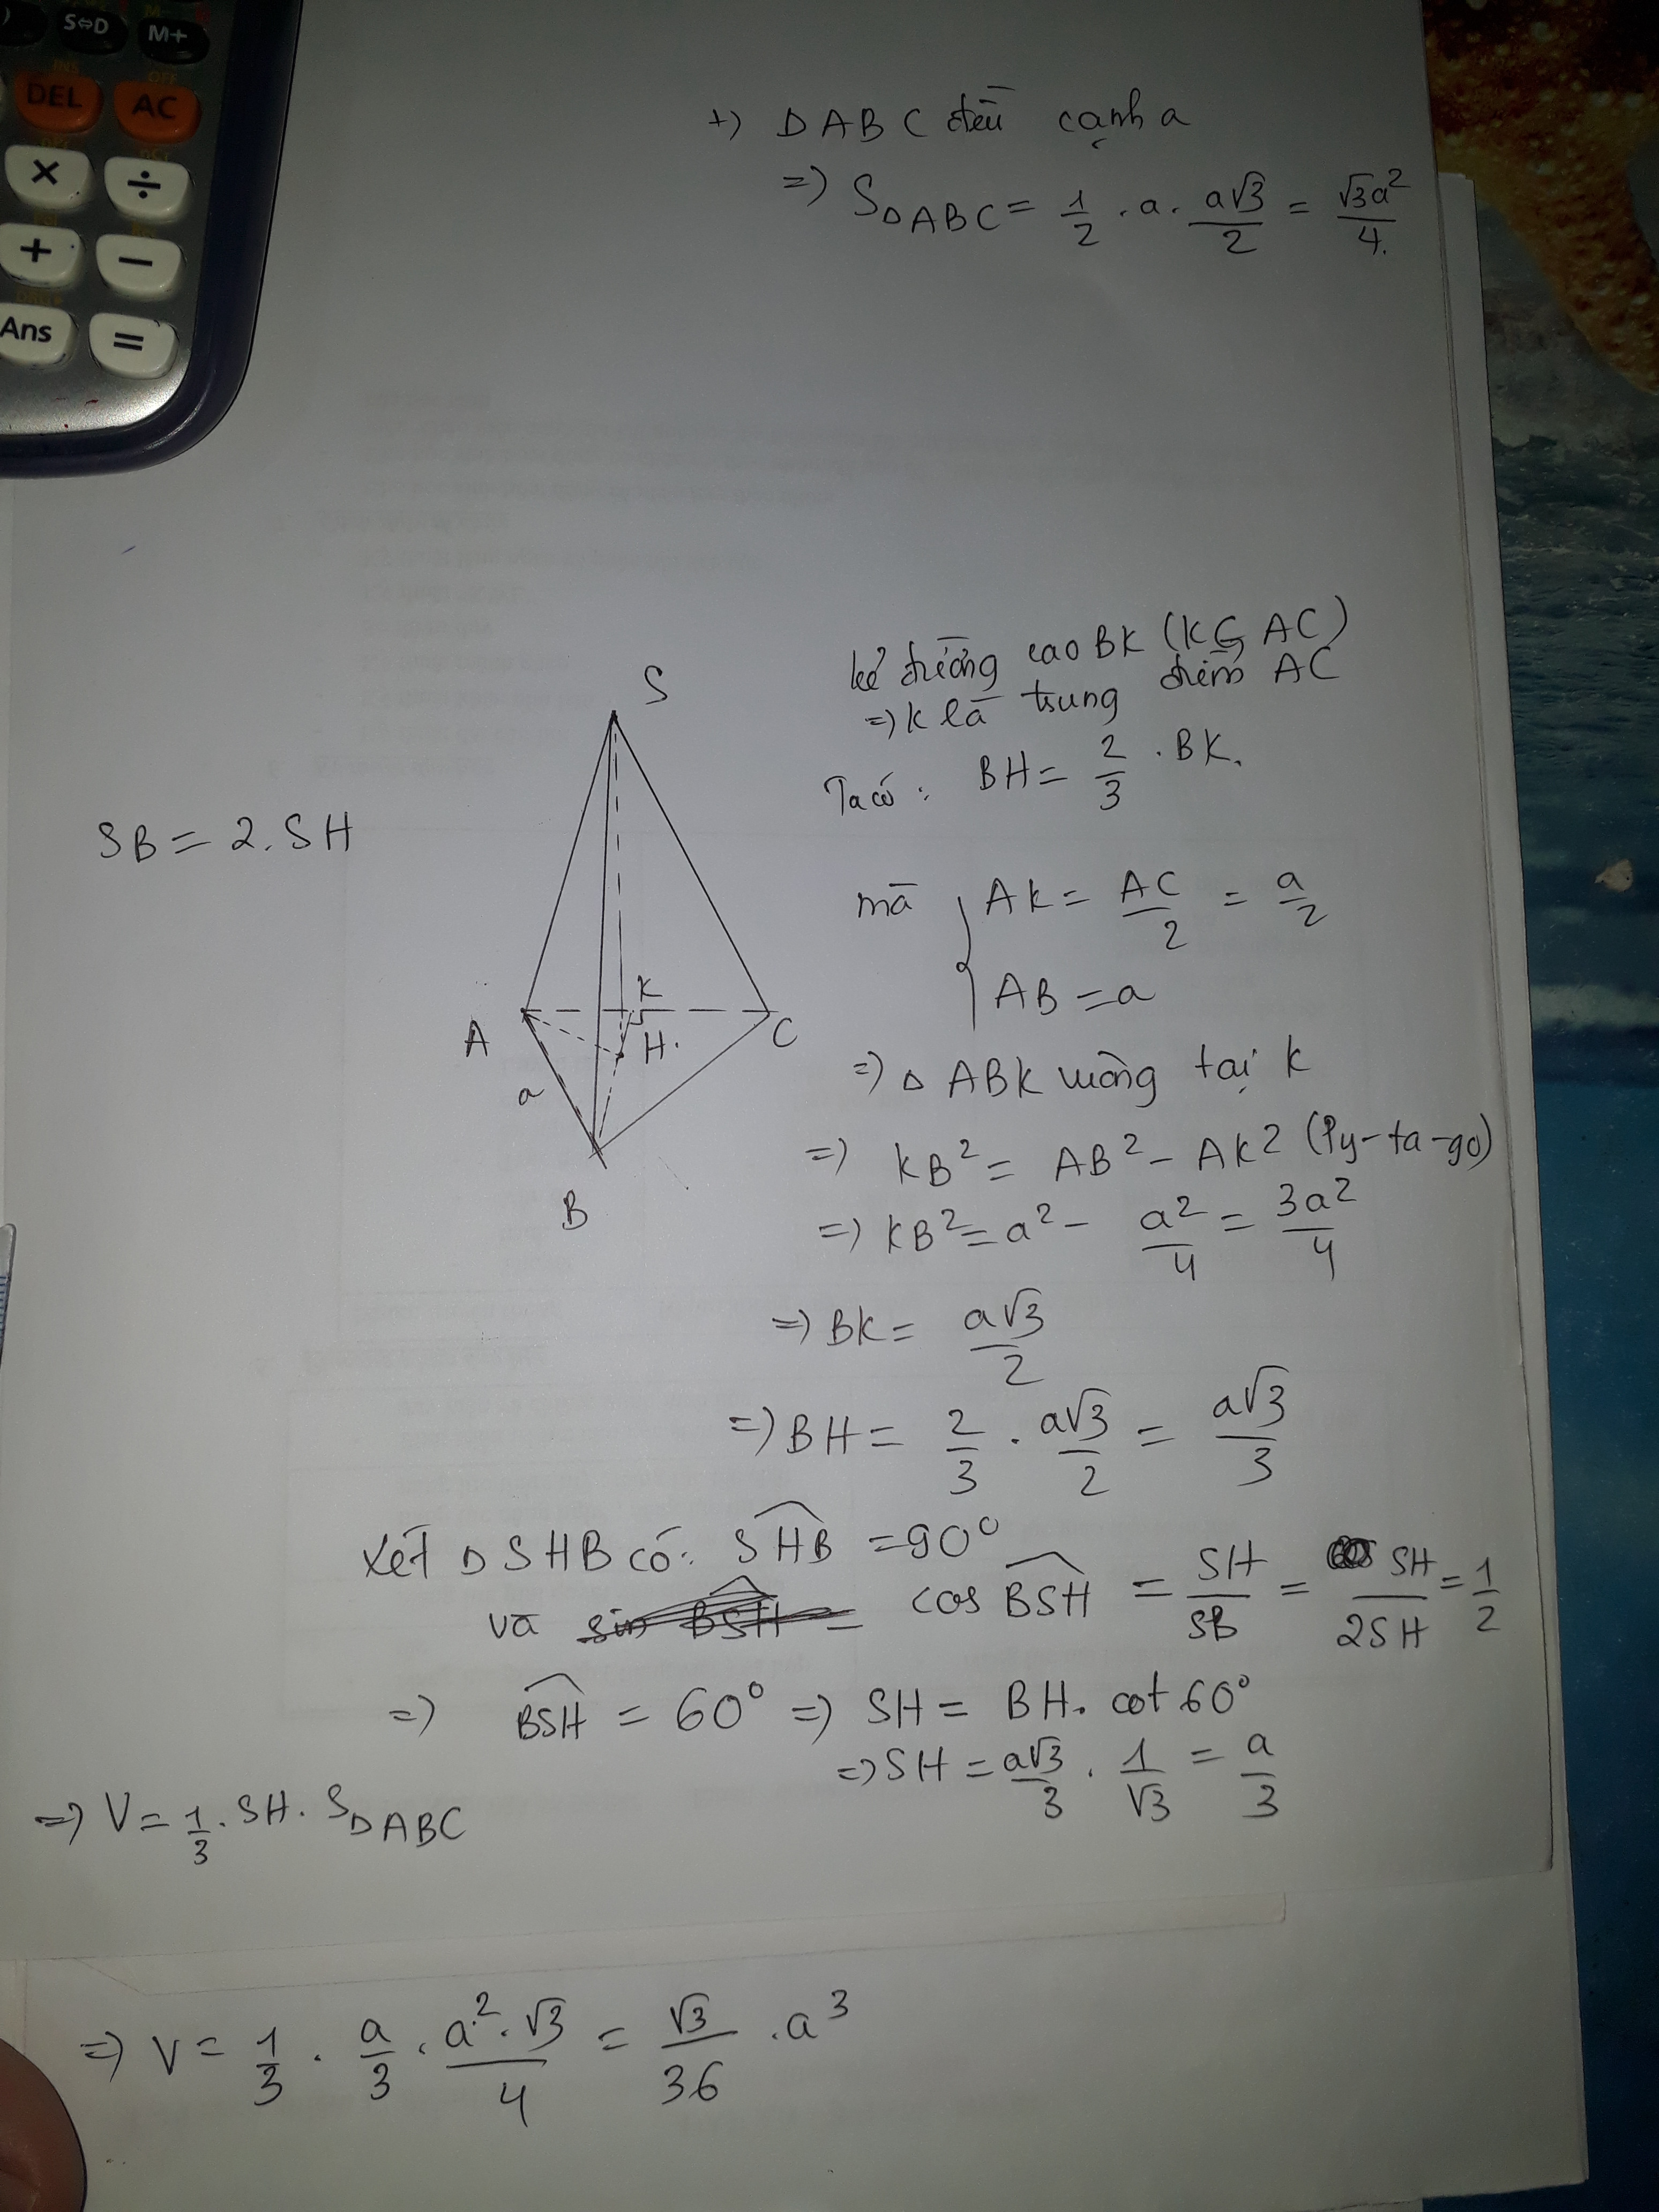 S⇔D M+
DEL AC
× ÷
+ −
Ans =
+) Δ ABC đều cạnh a
=) SΔABC = 1/2 . a . a√3/2 = √3a²/4.
S
A
B
C
K
H.
a
SB = 2.SH
kẻ đường cao BK (K∈AC)
=) K là trung điểm AC
Ta có : BH = 2/3 . BK.
mà { AK = AC/2 = a/2
AB = a
=) Δ ABK vuông tại K
=) KB² = AB² - AK² (Py-ta-go)
=) KB² = a² - a²/4 = 3a²/4
=) BK = a√3/2
=) BH = 2/3 . a√3/2 = a√3/3
Xét Δ SHB có: SHB = 90°
và cos BSH = SH/SB = SH/2SH = 1/2
=) BSH = 60° =) SH = BH. cot 60°
=) SH = a√3/3 . 1/√3 = a/3
=) V = 1/3 . SH . SΔABC
=) V = 1/3 . a/3 . a².√3/4 = √3/36 .a³